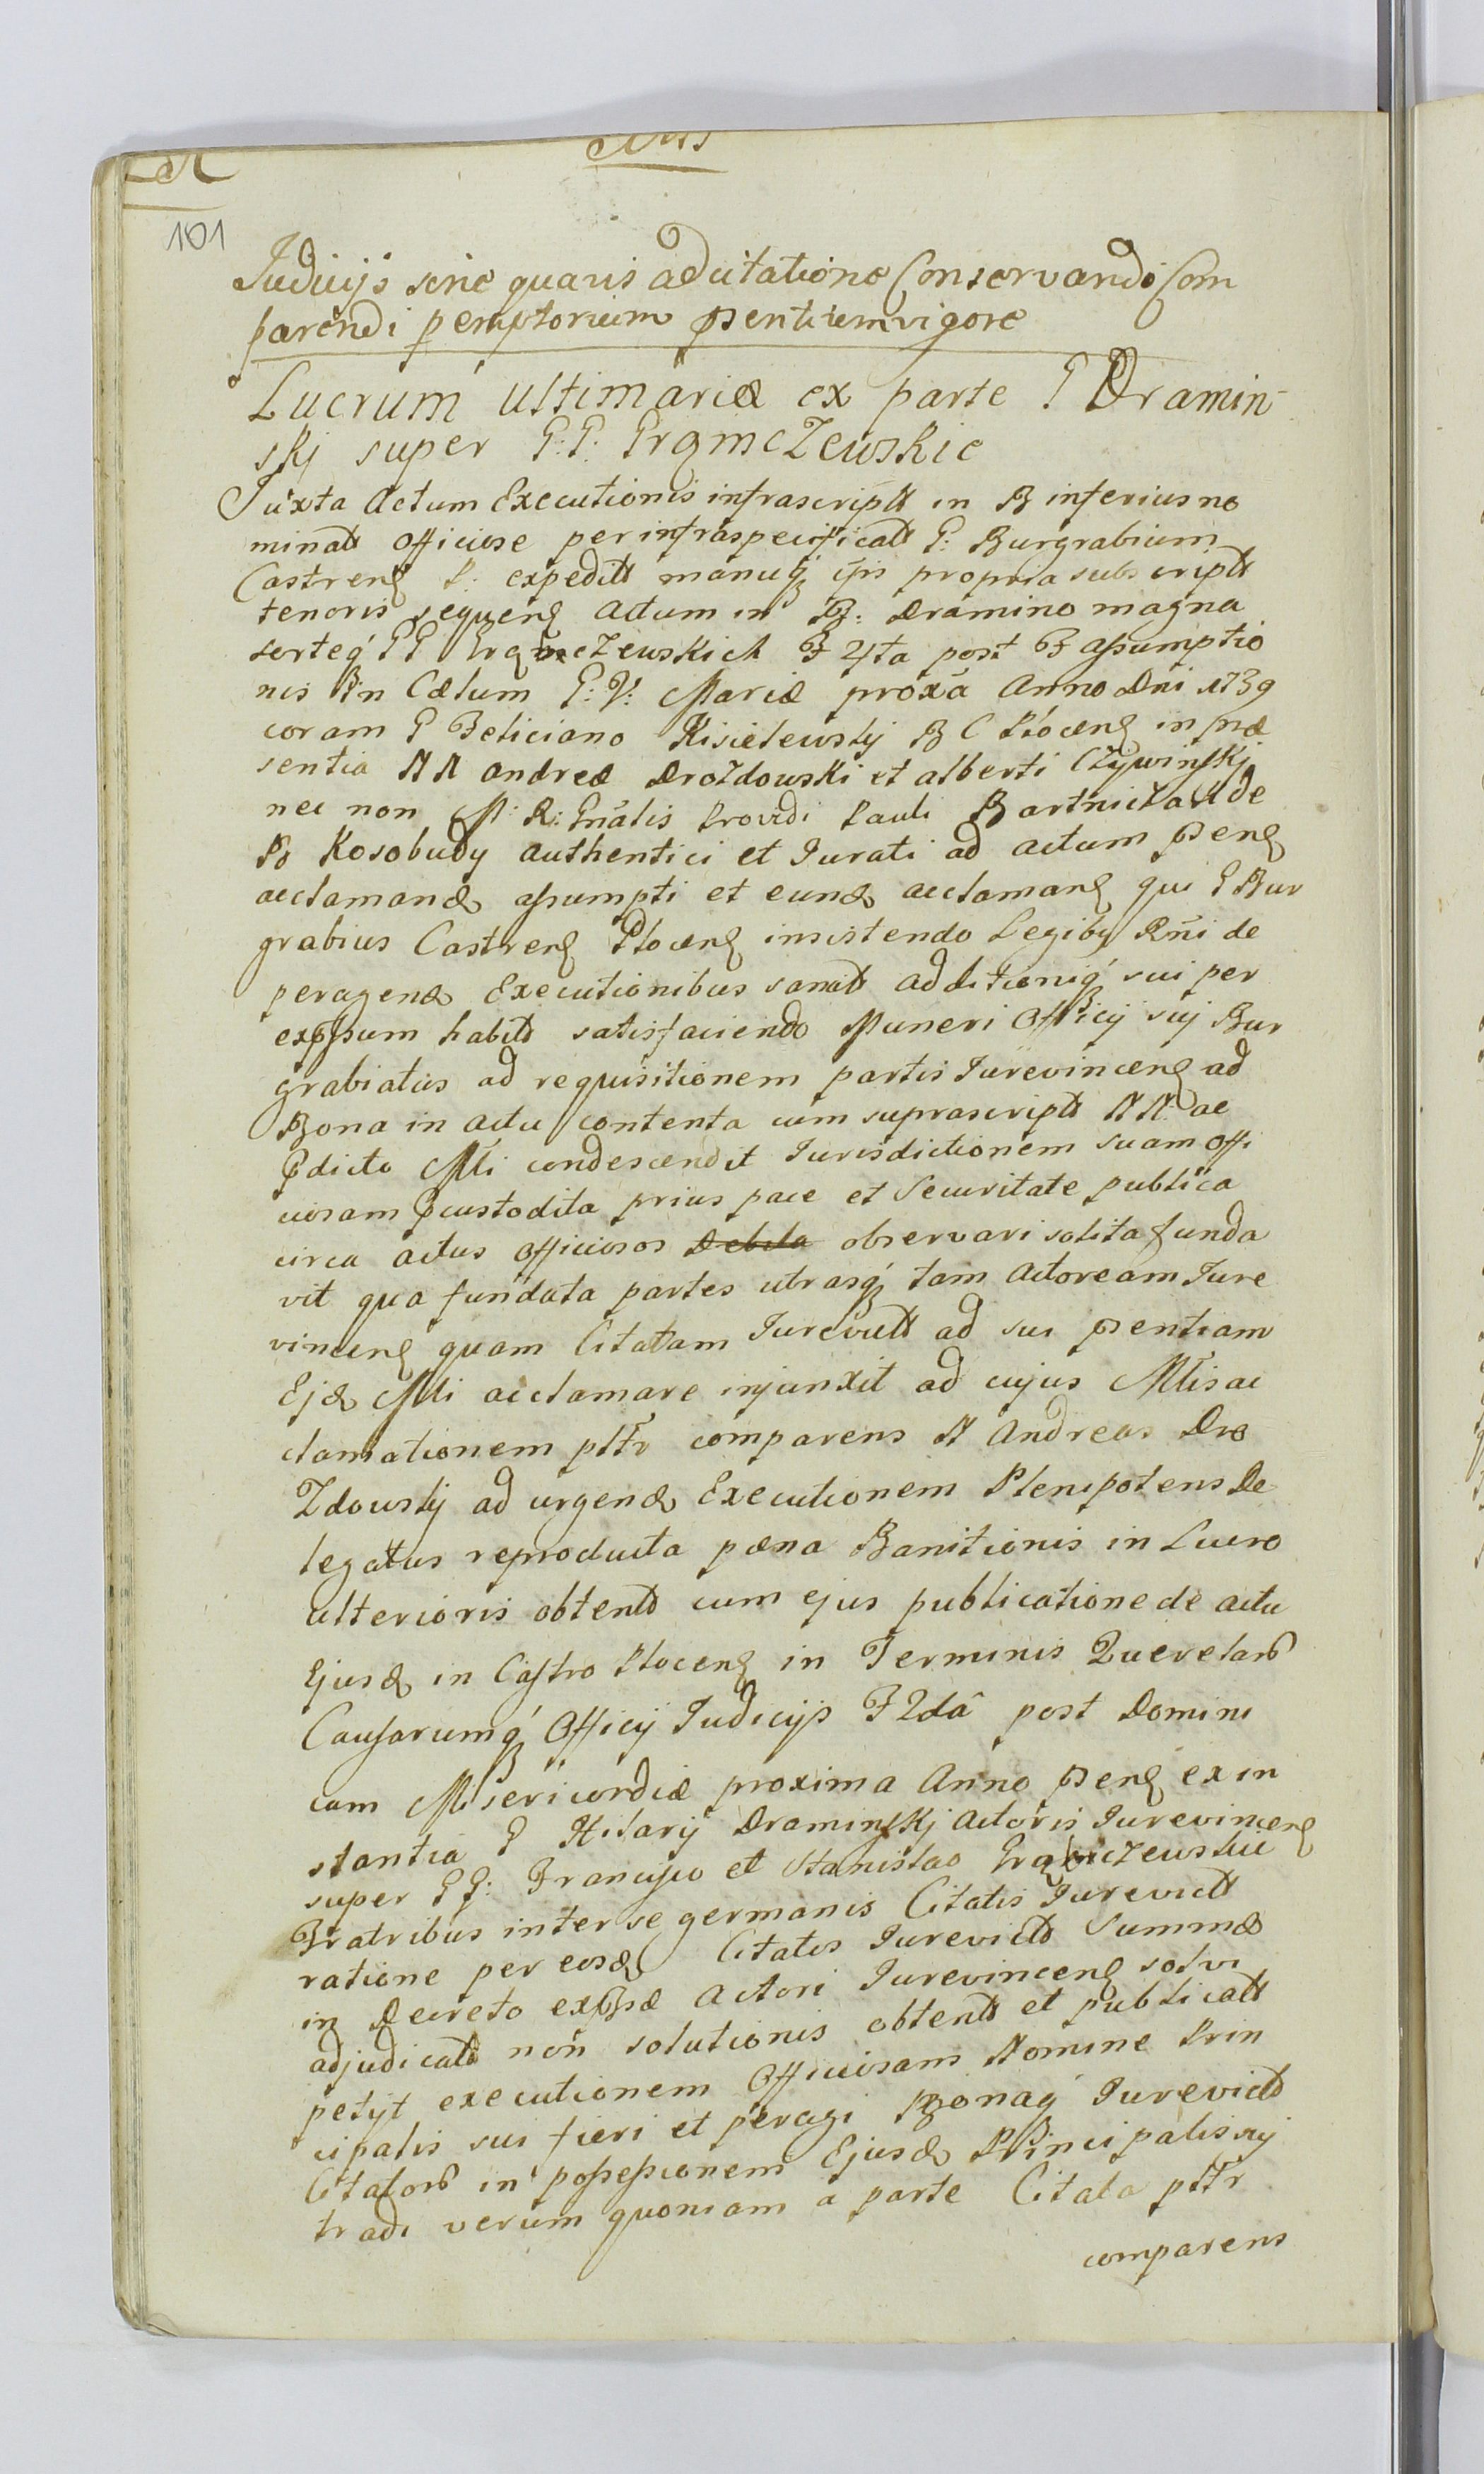 101
Judicijs sine quavis adcitatione Conservando Com
parendi peremptorium pſentium vigore
Lucrum ultimariæ ex parte G Dramin-
skj super G: G: GrąmcZewskie
Juxta Actum Executionis infrascriptt in B inferius no
minatt officiose per infraspecificatt G: Burgrabium
Castrenſ P: expeditt manuq ejus propria subscriptt
tenoris sequenſ Actum in B: Dramino magna
sorteq́ GG ZewsKich F 4ta post F aſsumptio
nis in Cœlum B: V: Mariæ proxa Anno Dni 1739
coram G Feliciano Kisielewskj B C Płocenſ in præ
sentia NN Andreæ DroZdowski et Alberti CZywinſkj
nec non M: R: Gnãlis Providi Pauli BartniczaK de
B Kosobudy Authentici et Jurati ad actum pſenſ
acclamand aſsumpti et eund acclamanſ qui G Bur
grabius Castrenſ Płocenſ insistendo Legibꝫ Rñi de
peragend Executionibus sancitt additioniq́ sui per
expſsum habitt satisfaciendo Muneri Officij suj Bur
grabiatus ad requisitionem partis Jurevincenſ ad
Bona in actu contenta cum suprascriptt NN: ac
pdicto Mli condescendit Jurisdictionem suam offi
ciosam pcustodita prius pace et Securitate publica
circa actus officiosos Debita observari solita funda
vit qua fundata partes utrasq́ tam Actoream Jure
vincenſ quam Citatam Jurevictt ad sui pſentiam
Ejd Mli acclamare injunxit ad cujus Mlis ac
clamationem pltr comparens N Andreas Dro
Zdowskj ad urgend Executionem Plenipotens De
legatus reproducta pœna Banitionis in Lucro
ulterioris obtentt cum ejus publicatione de actu
Ejusd in Caſtro Płocenſ in Terminis Querelarꝰ
Cauſarumq́ Officij Judicijs F 2dâ post Domini
cam Misericordiæ proxima Anno pſenſ ex in
stantia G Hilarij DraminſKj Actoris Jurevincenſ
super GG: Franciſco et Stanislao
Fratribus inter se germanis Citatis Jurevictt
ratione per eosd Citatos Jurevictt Summæ
in Decreto expſsæ Actori Jurevincenſ solvi
adjudicatt non solutionis obtentt et publicatt
petijt executionem Officiosam Nomine Prin
cipalis sui fieri et peragi Bonaq́ Jurevictt
Citatorꝰ in poſseſsionem Ejusd Principalis suj
tradi verum quoniam a parte Citata pltr
comparens